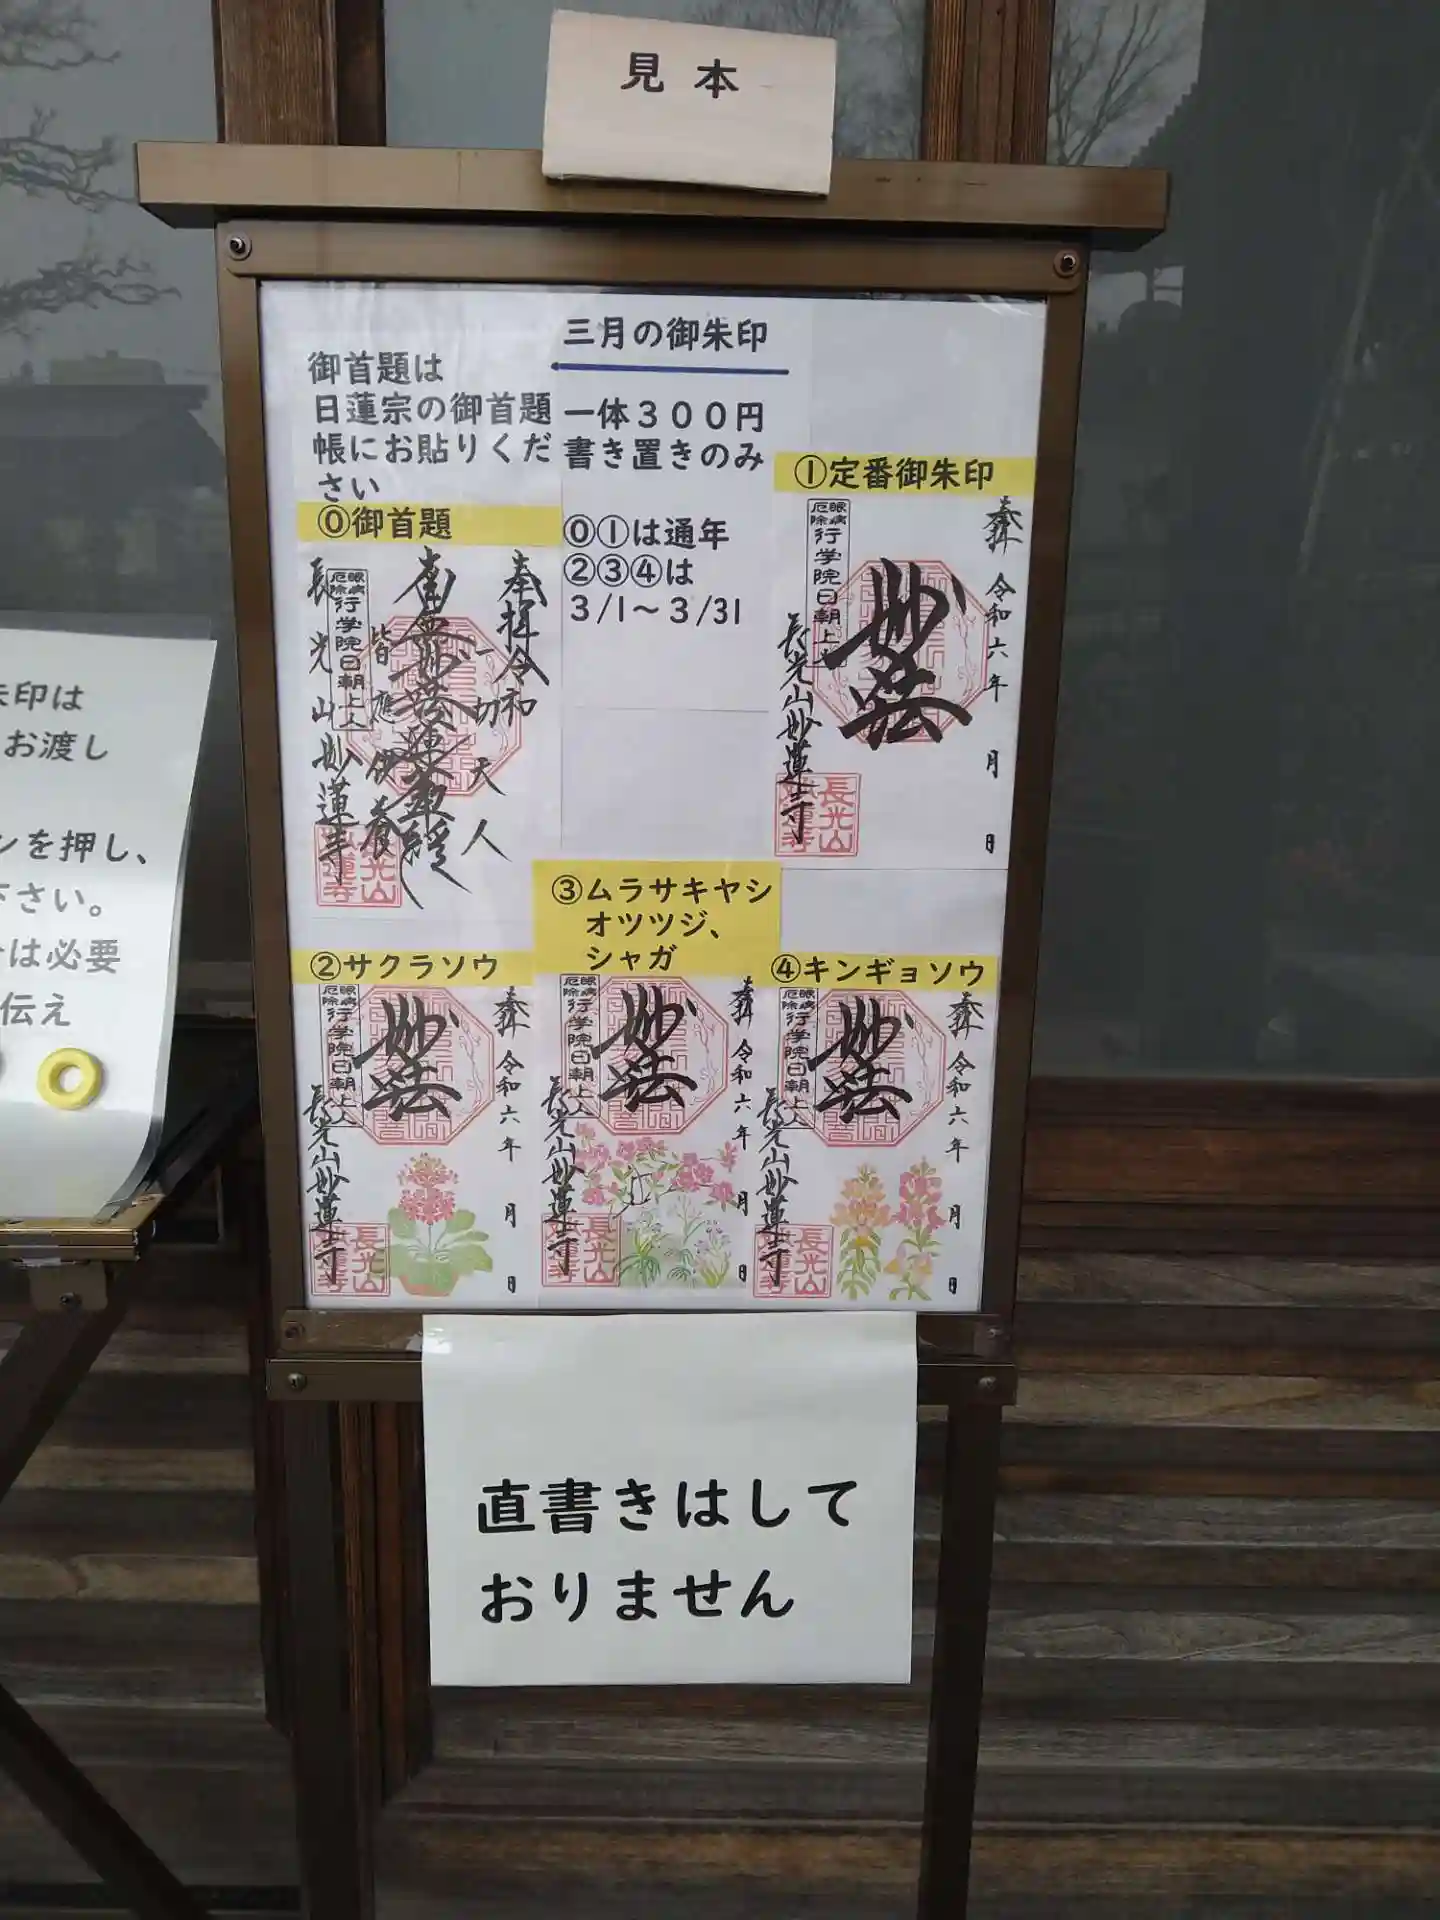 見本
三月の御朱印
御首題は
日蓮宗の御首題
帳にお貼りくだ
さい
一体300円
書き置きのみ
⓪①は通年
②③④は
3/1～3/31
⓪御首題
奉拝令和
一切天人
南無妙法蓮華経
皆應供養
眼病
厄除
行学院日朝上人
長光山妙蓮寺
①定番御朱印
奉拝 令和六年 月 日
妙法
眼病
厄除
行学院日朝上人
長光山妙蓮寺
長光山
妙蓮寺
②サクラソウ
奉拝 令和六年 月 日
妙法
眼病
厄除
行学院日朝上人
長光山妙蓮寺
長光山
③ムラサキヤシ
オツツジ、
シャガ
奉拝 令和六年 月 日
妙法
眼病
厄除
行学院日朝上人
長光山妙蓮寺
長光山
④キンギョソウ
奉拝 令和六年 月 日
妙法
眼病
厄除
行学院日朝上人
長光山妙蓮寺
長光山
直書きはして
おりません
朱印は
お渡し
ンを押し、
下さい。
は必要
伝え